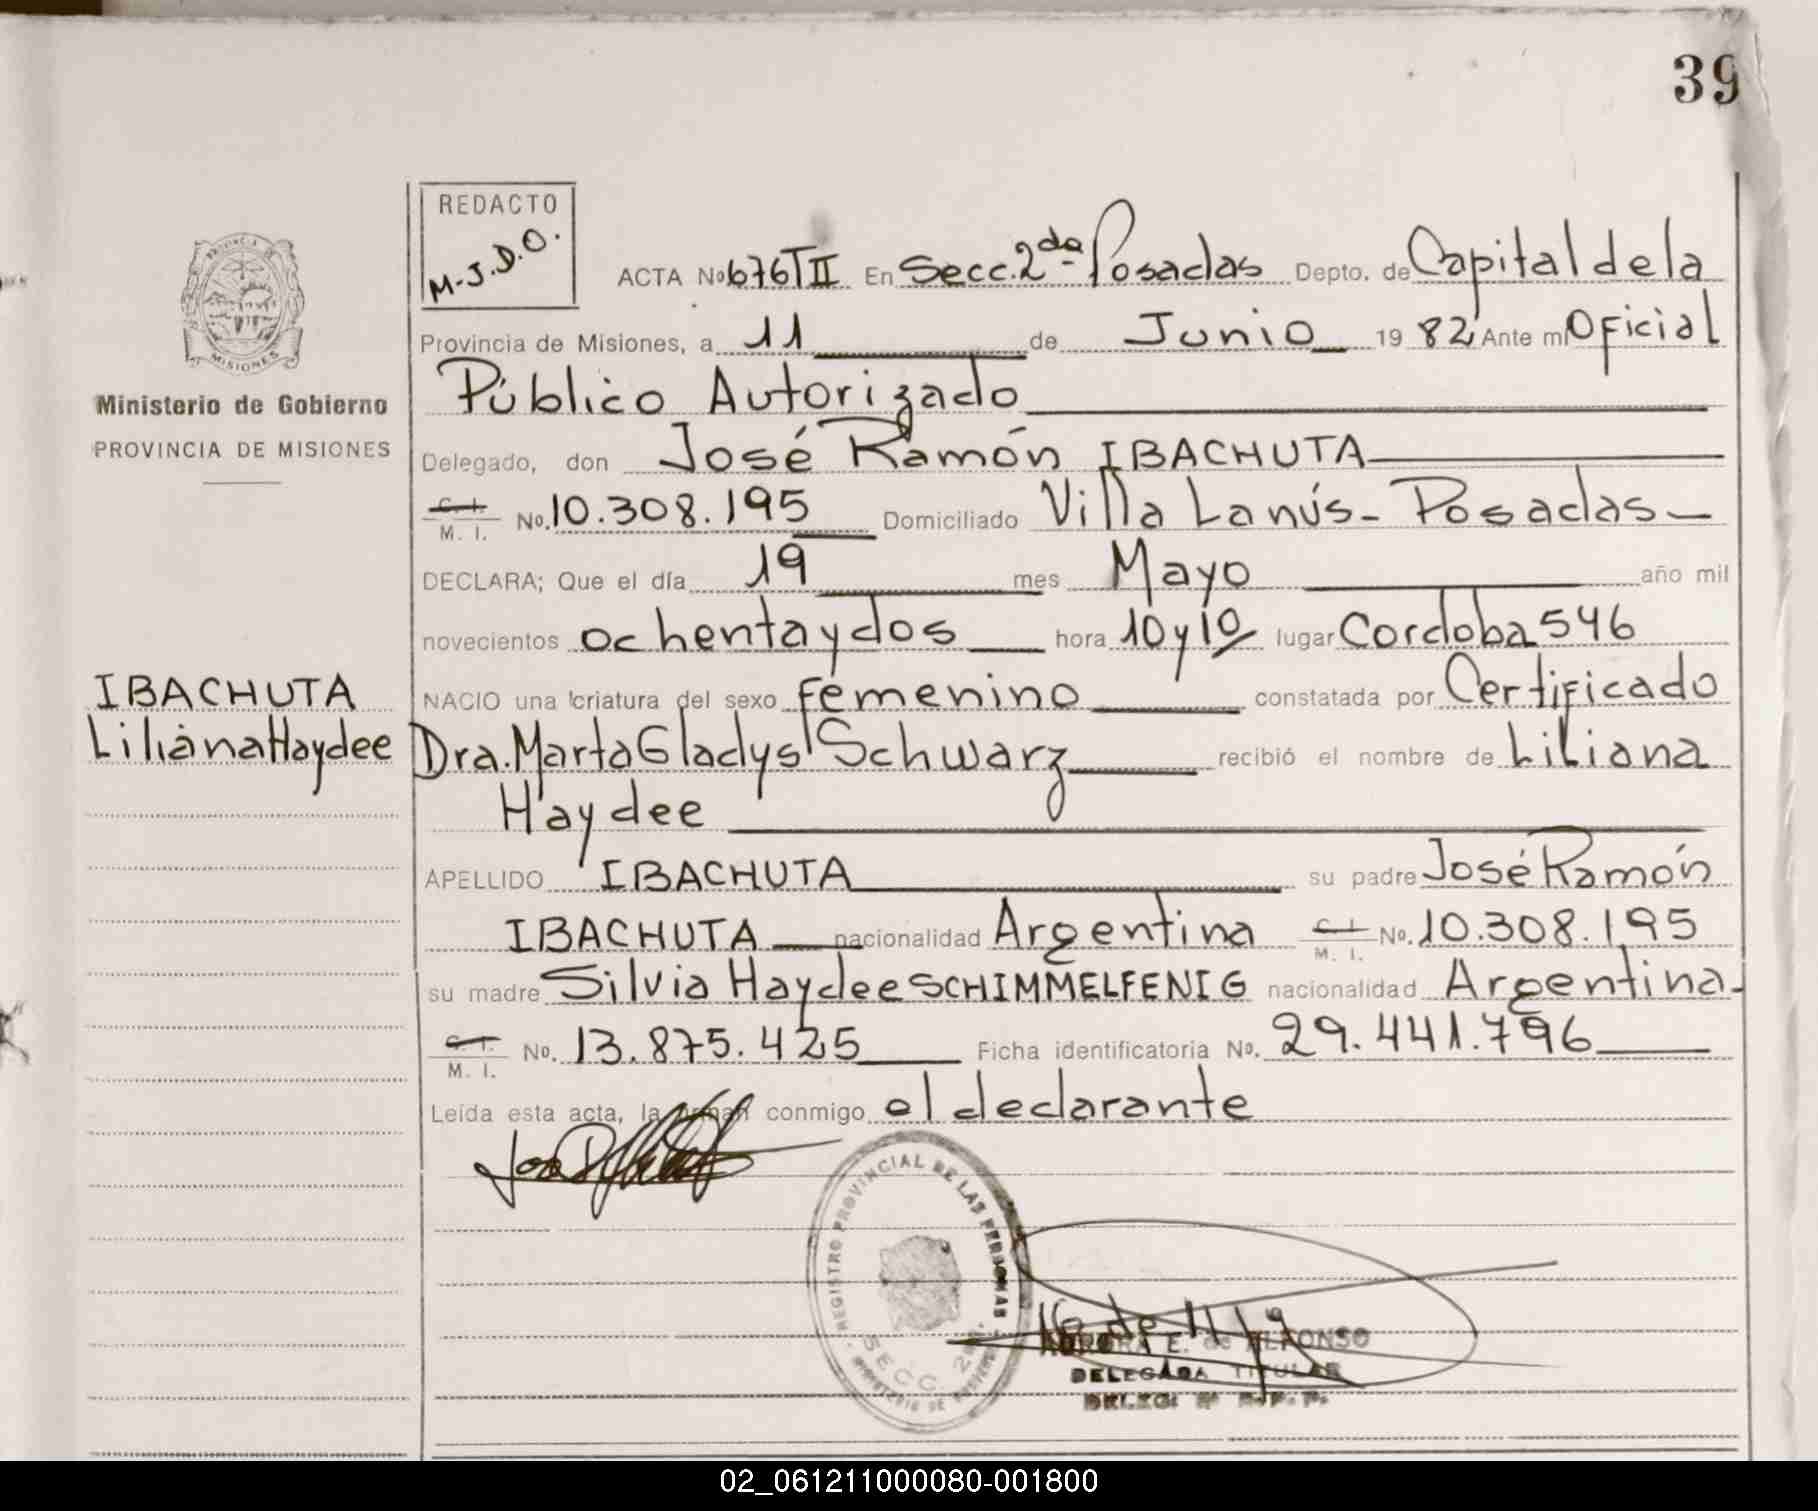 39
REDACTO
M-J.D.O.
ACTA No 676 T II En Secc. 2da Posadas Depto. de Capital de la
Provincia de Misiones, a 11 de Junio 1982 Ante mi Oficial
Público Autorizado
Delegado, don José Ramón IBACHUTA
C. I.
M. I. No. 10.308.195 Domiciliado Villa Lanús - Posadas -
DECLARA; Que el día 19 mes Mayo año mil
novecientos ochentaydos hora 10 y 10 lugar Cordoba 546
NACIO una criatura del sexo Femenino constatada por Certificado
Dra. Marta Gladys Schwarz recibió el nombre de Liliana
Haydee
APELLIDO IBACHUTA su padre José Ramón
IBACHUTA nacionalidad Argentina C. I.
M. I. No. 10.308.195
su madre Silvia Haydee SCHIMMELFENIG nacionalidad Argentina-
C. I.
M. I. No. 13.875.425 Ficha identificatoria No. 29.441.796
Leída esta acta, la firman conmigo el declarante
PROVINCIA DE
MISIONES
Ministerio de Gobierno
PROVINCIA DE MISIONES
IBACHUTA
Liliana Haydee
REGISTRO PROVINCIAL DE LAS PERSONAS
SECC. 2a.
E. de ALFONSO
DELEGADA TITULAR
02_061211000080-001800